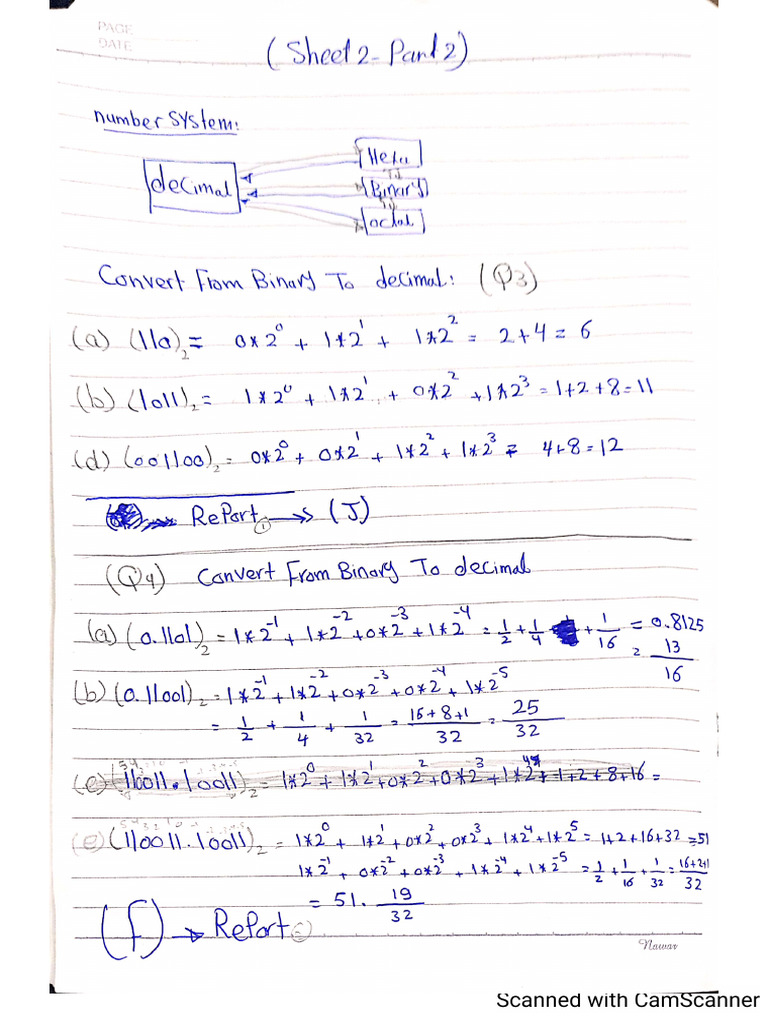 PAGE
DATE
(Sheet 2 - Part 2)
number system:
decimal
Hexa
To
Binary
To
octal
Convert From Binary To decimal: (Q3)
(a) (110)₂ = 0*2⁰ + 1*2¹ + 1*2² = 2+4 = 6
(b) (1011)₂ = 1*2⁰ + 1*2¹ + 0*2² + 1*2³ = 1+2+8 = 11
(d) (001100)₂ = 0*2⁰ + 0*2¹ + 1*2² + 1*2³ = 4+8 = 12
Report ① → (J)
(Q4) Convert From Binary To decimal
(a) (0.1101)₂ = 1*2⁻¹ + 1*2⁻² + 0*2⁻³ + 1*2⁻⁴ = 1/2 + 1/4 + 1/16 = 0.8125
= 13/16
(b) (0.11001)₂ = 1*2⁻¹ + 1*2⁻² + 0*2⁻³ + 0*2⁻⁴ + 1*2⁻⁵
= 1/2 + 1/4 + 1/32 = 16+8+1/32 = 25/32
(e) (11001.10011)₂ = 1*2⁰ + 1*2¹ + 0*2² + 0*2³ + 1*2⁴ = 1+2+8+16 =
(e) (110011.10011)₂ = 1*2⁰ + 1*2¹ + 0*2² + 0*2³ + 1*2⁴ + 1*2⁵ = 1+2+16+32 = 51
1*2⁻¹ + 0*2⁻² + 0*2⁻³ + 1*2⁻⁴ + 1*2⁻⁵ = 1/2 + 1/16 + 1/32 = 16+2+1/32
= 51. 19/32
(f) → Report
Nawar
Scanned with CamScanner